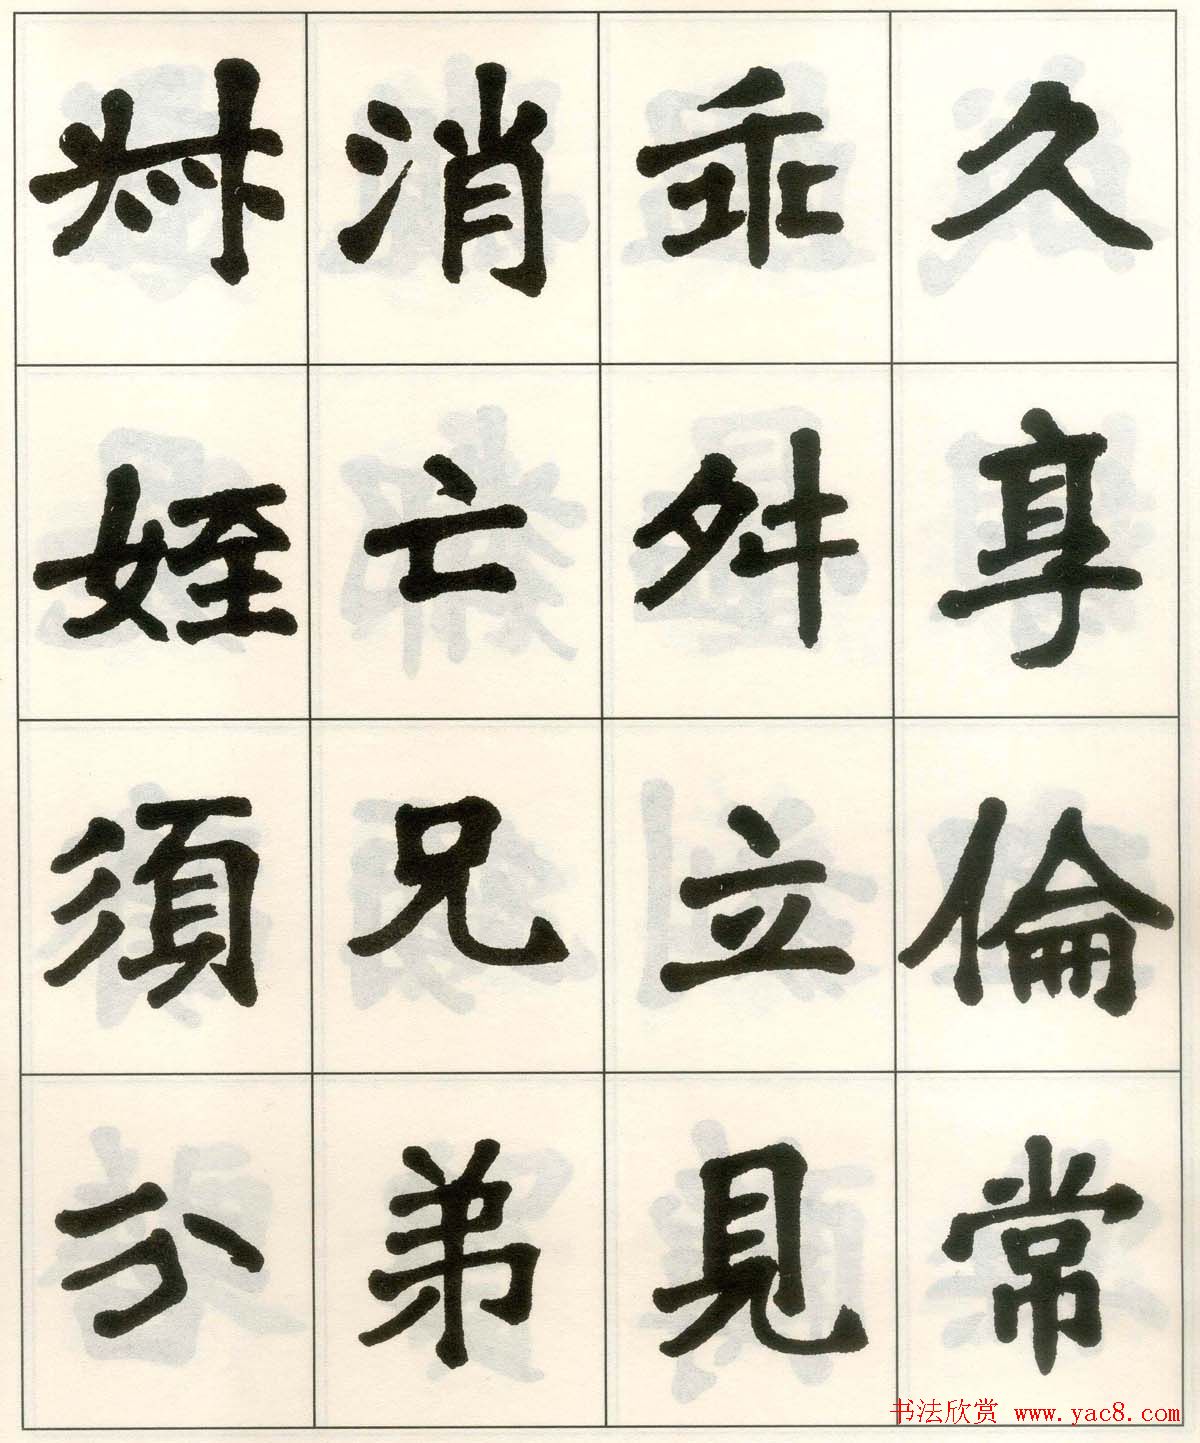 久享倫常
乖舛立見
消亡兄弟
叔姪須分
书法欣赏 www.yac8.com